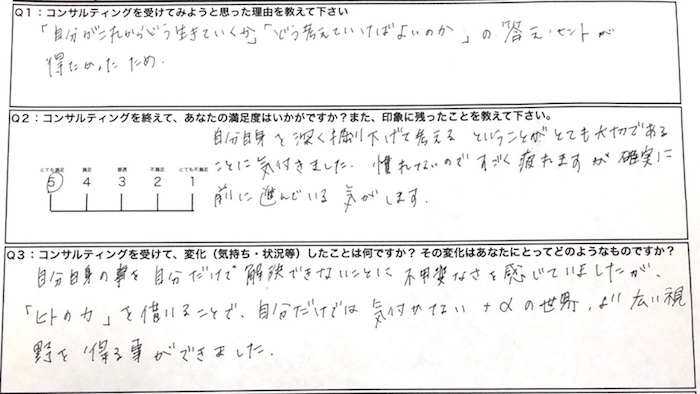 Q1：コンサルティングを受けてみようと思った理由を教えて下さい
「自分がこれからどう生きていくか」「どう考えていけばよいのか」の答え・ヒントが
得たかったため.
Q2：コンサルティングを終えて、あなたの満足度はいかがですか？また、印象に残ったことを教えて下さい。
自分自身を深く掘り下げて考えるということがとても大切である
ことに気付きました. 慣れないのですごく疲れますが確実に
前に進んでいる気がします.
とても満足 満足 普通 不満足 とても不満足
5 4 3 2 1
Q3：コンサルティングを受けて、変化（気持ち・状況等）したことは何ですか？ その変化はあなたにとってどのようなものですか？
自分自身の事を自分だけで解決できないことに不甲斐なさを感じていましたが、
「ヒトの力」を借いることで、自分だけでは気付かない +αの世界、より広い視
野を得る事ができました.